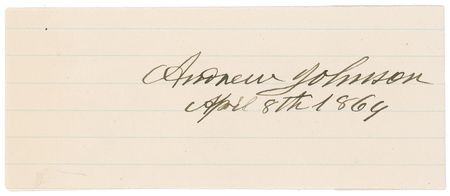 Andrew Johnson
April 8th 1869